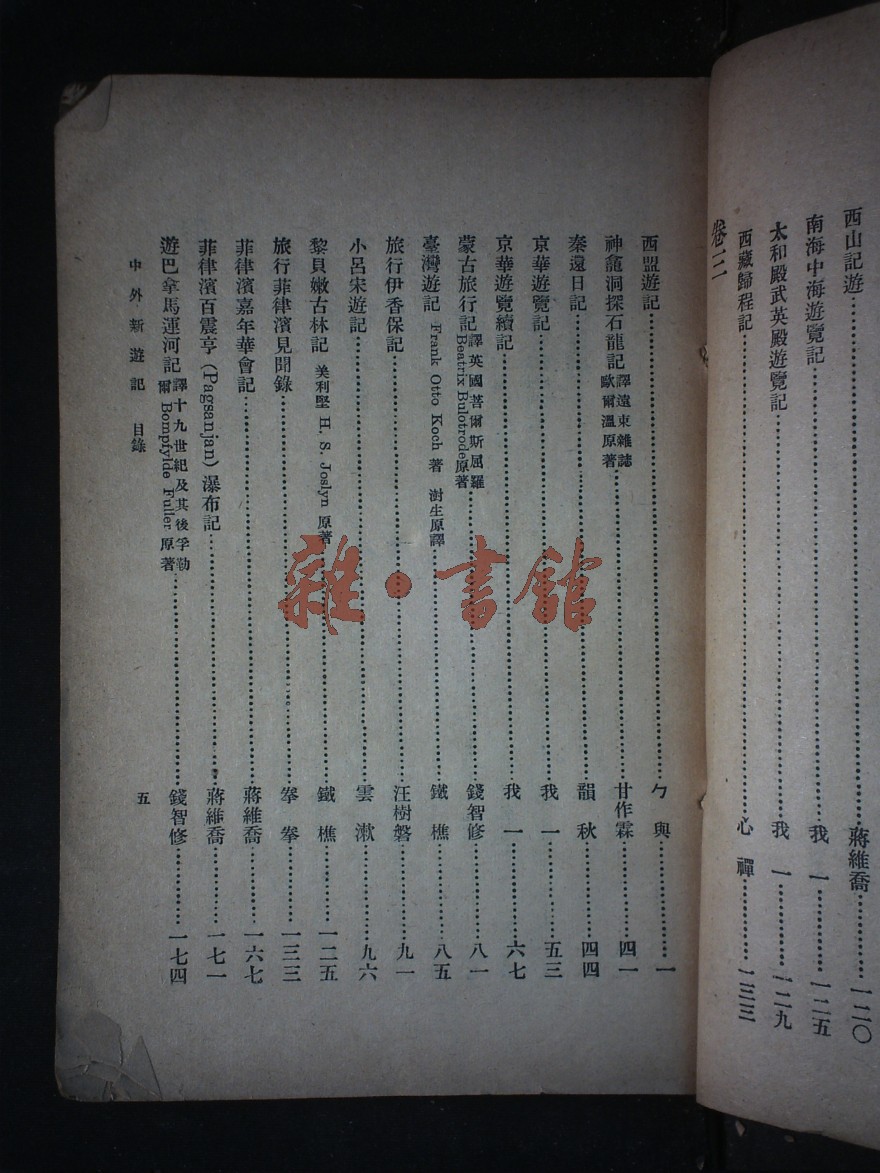 西山記遊……蔣維喬……一二〇
南海中海遊覽記……我一……一二五
太和殿武英殿遊覽記……我一……一二九
西藏歸程記……心禪……一三三
卷三
西盟遊記……勹輿……一
神龕洞探石龍記 譯遠東雜誌歐爾溫原著……甘作霖……四一
秦遠日記……韻秋……四四
京華遊覽記……我一……五三
京華遊覽續記……我一……六七
蒙古旅行記 譯英國菩爾斯屈羅Beatrix Bulotrode原著……錢智修……八一
臺灣遊記 Frank Otto Koch 著 澍生原譯……鐵樵……八五
旅行伊香保記……汪樹磐……九一
小呂宋遊記……雲漱……九六
黎貝嫩古林記 美利堅 H. S. Joslyn 原著……鐵樵……一二五
旅行菲律濱見聞錄……拳拳……一三三
菲律濱嘉年華會記……蔣維喬……一六七
菲律濱百震亨(Pagsanjan)瀑布記……蔣維喬……一七一
遊巴拿馬運河記 譯十九世紀及其後孚勒爾 Bompfylde Fuller 原著……錢智修……一七四
中外新遊記 目錄 五
雜·書館